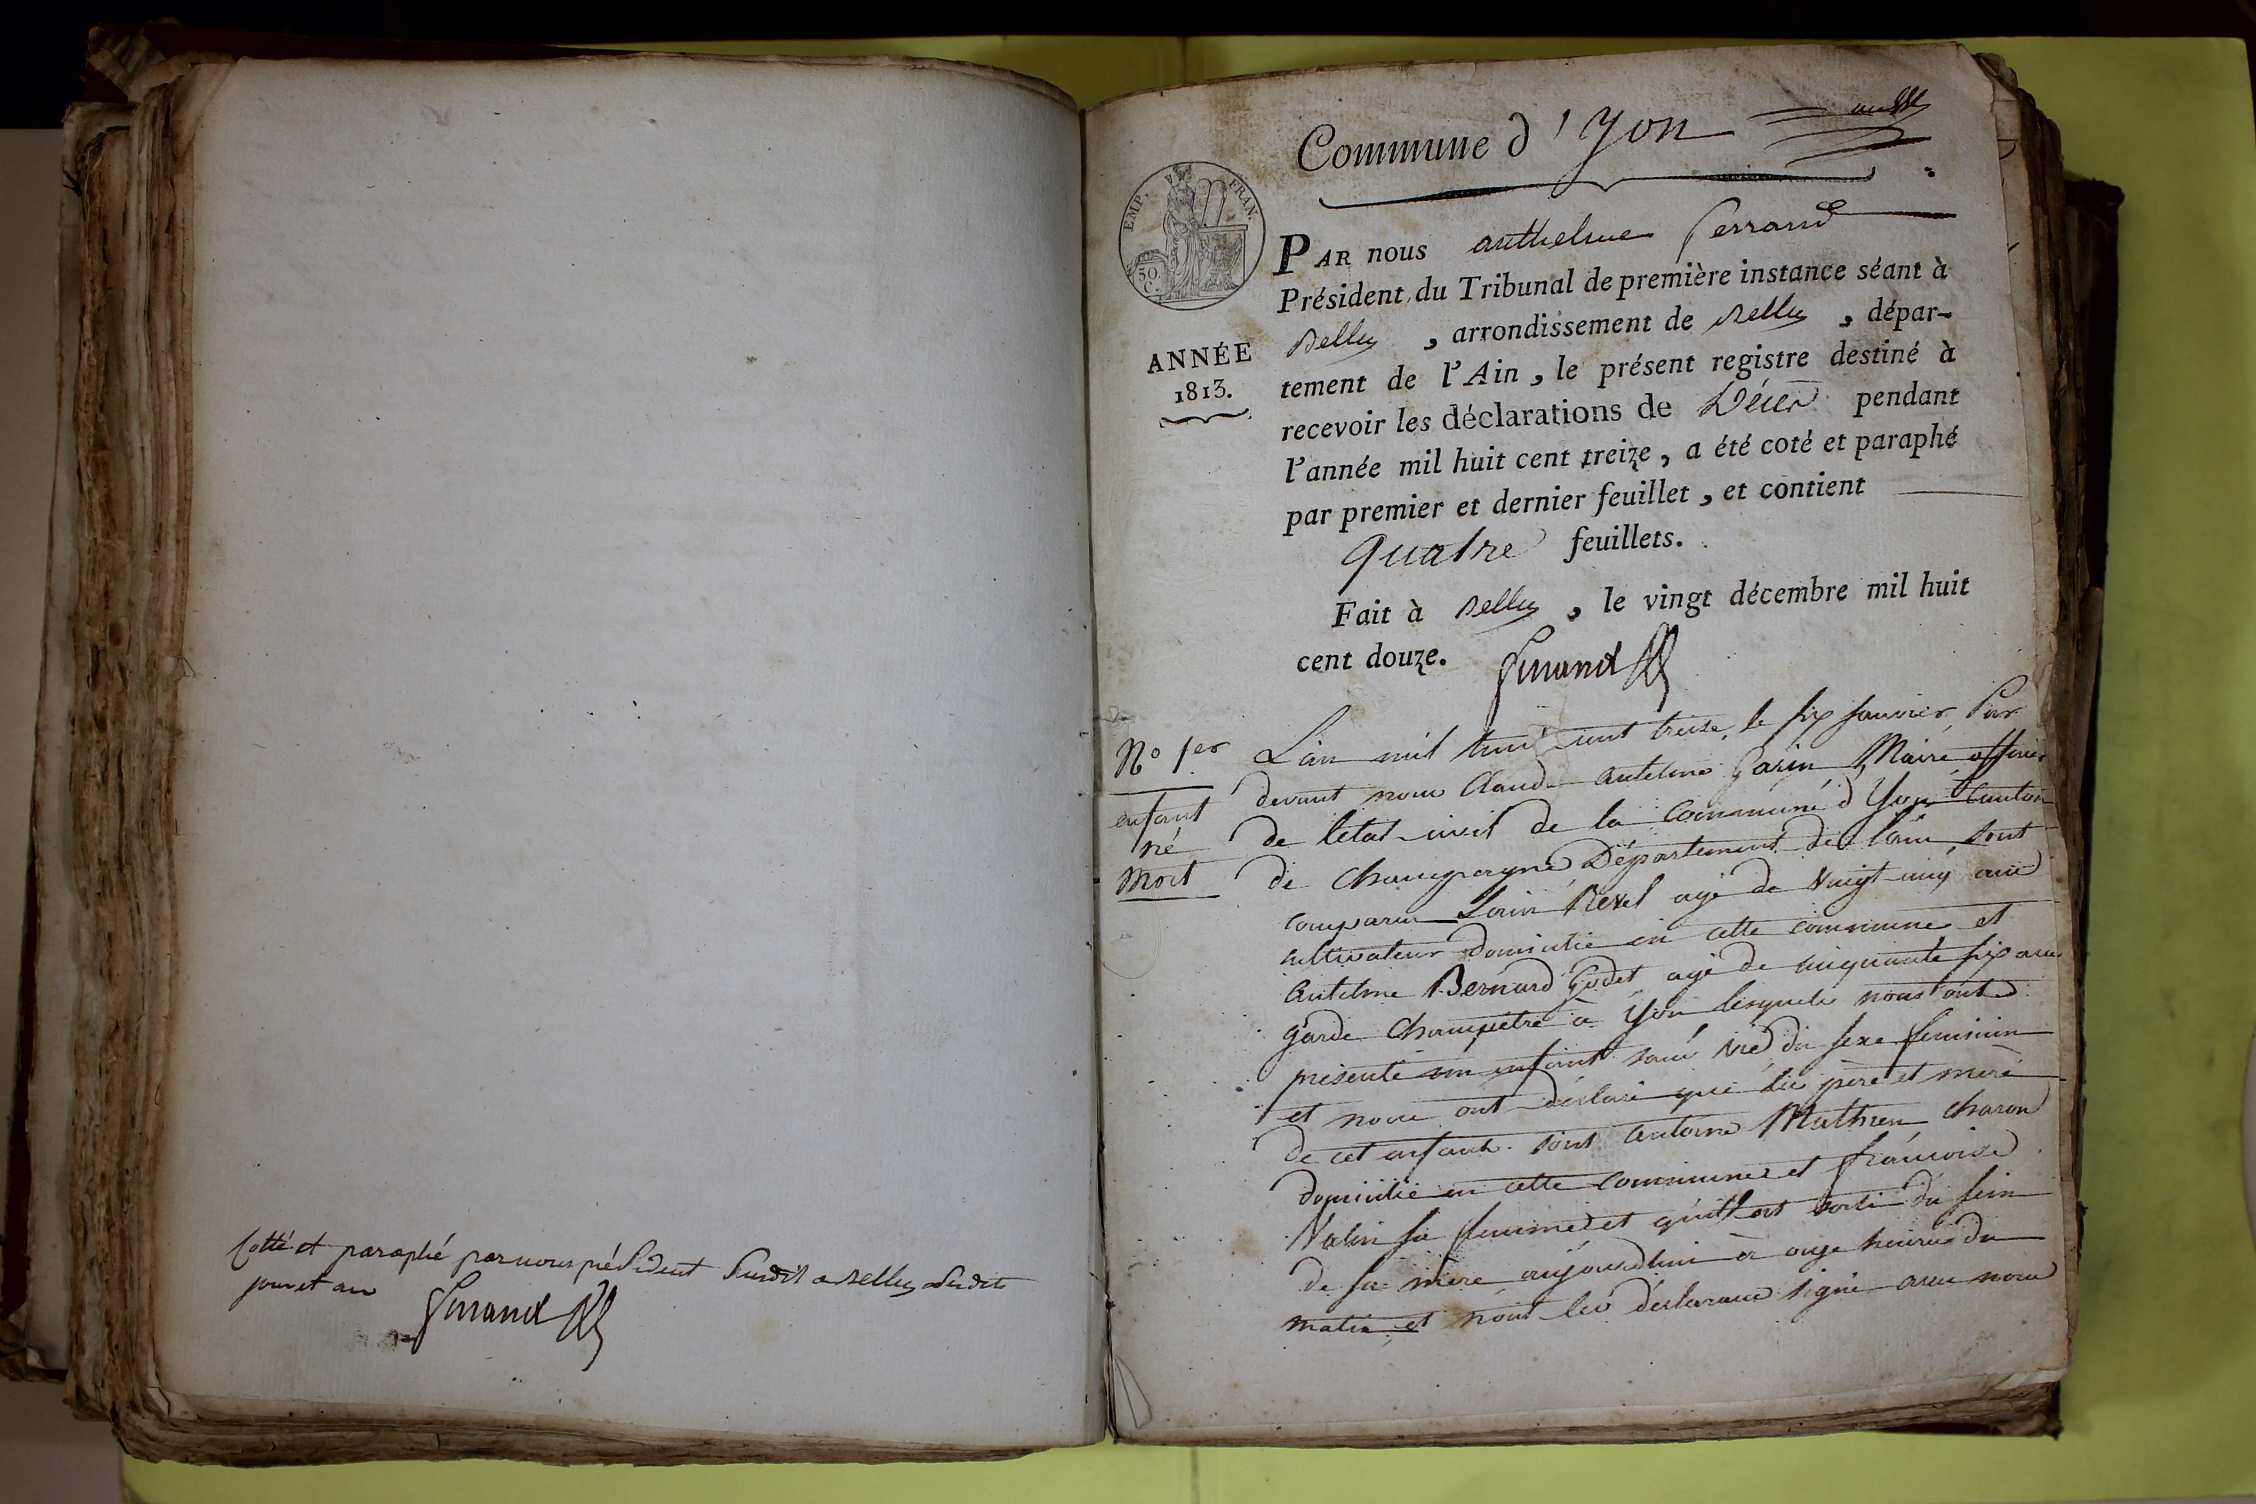 Cotté et paraphé par nous président susdit a Belley Susdits
jour et an
Ferrand
Commune d'Yon
EMP. FRAN.
50 C.
ANNÉE
1813.
PAR nous anthelme ferrand
Président du Tribunal de première instance séant à
Belley , arrondissement de Belley , dépar-
tement de l'Ain, le présent registre destiné à
recevoir les déclarations de Décès pendant
l'année mil huit cent treize, a été coté et paraphé
par premier et dernier feuillet, et contient
quatre feuillets.
Fait à Belley , le vingt décembre mil huit
cent douze. Ferrand
No 1er
enfant
né
Mort
L'an mil huit cent treize, le six janvier Par
devant nous Claude antelme Garin Maire officier
de l'état civil de la Commune d'Yon Canton
de Champagne Département de l'ain, sont
comparu Louis Revel agé de vingt cinq ans
cultivateur domicilié en cette commune et
antelme Bernard Godet agé de cinquante six ans
garde champêtre à Yon lesquels nous ont
présenté un enfant sans vie du sexe feminin
et nous ont déclaré que les père et mère
de cet enfant sont antoine Mathieu charon
domicilié en cette commune et françoise
Valin sa femme et qu'il est sorti du sein
de sa mère aujourdhui à onze heures du
matin et nont les déclarans signé avec nous